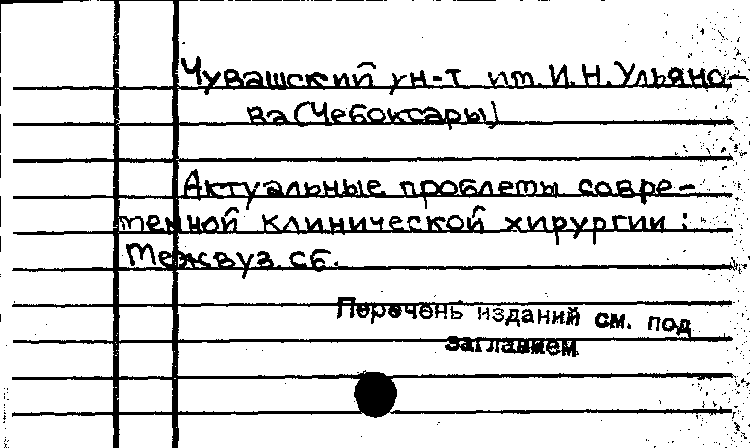 Чувашский ун-т им. И.Н.Ульяно-
ва (Чебоксары)
Актуальные проблемы совре-
менной клинической хирургии:
Межвуз. сб.
Перечень изданий см. под
заглавием